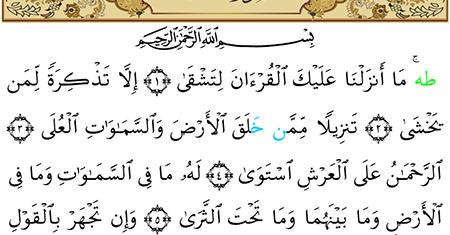 بِسْمِ اللَّهِ الرَّحْمَٰنِ الرَّحِيمِ
طه ۚ مَا أَنزَلْنَا عَلَيْكَ الْقُرْءَانَ لِتَشْقَىٰ ﴿١﴾ إِلَّا تَذْكِرَةً لِّمَن
يَخْشَىٰ ﴿٢﴾ تَنزِيلًا مِّمَّن خَلَقَ الْأَرْضَ وَالسَّمَٰوَٰتِ الْعُلَى ﴿٣﴾
الرَّحْمَٰنُ عَلَى الْعَرْشِ اسْتَوَىٰ ﴿٤﴾ لَهُۥ مَا فِى السَّمَٰوَٰتِ وَمَا فِى
الْأَرْضِ وَمَا بَيْنَهُمَا وَمَا تَحْتَ الثَّرَىٰ ﴿٥﴾ وَإِن تَجْهَرْ بِالْقَوْلِ